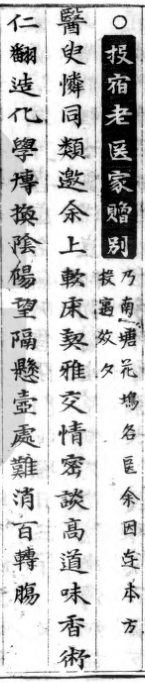 ○投宿老医家贈別
乃南塘花塢名医余因迮本方
投寓故夕
醫叟憐同類邀余上軟床契雅交情密談高道味香術
仁翻造化學博換陰陽望隔懸壺處難消百轉腸